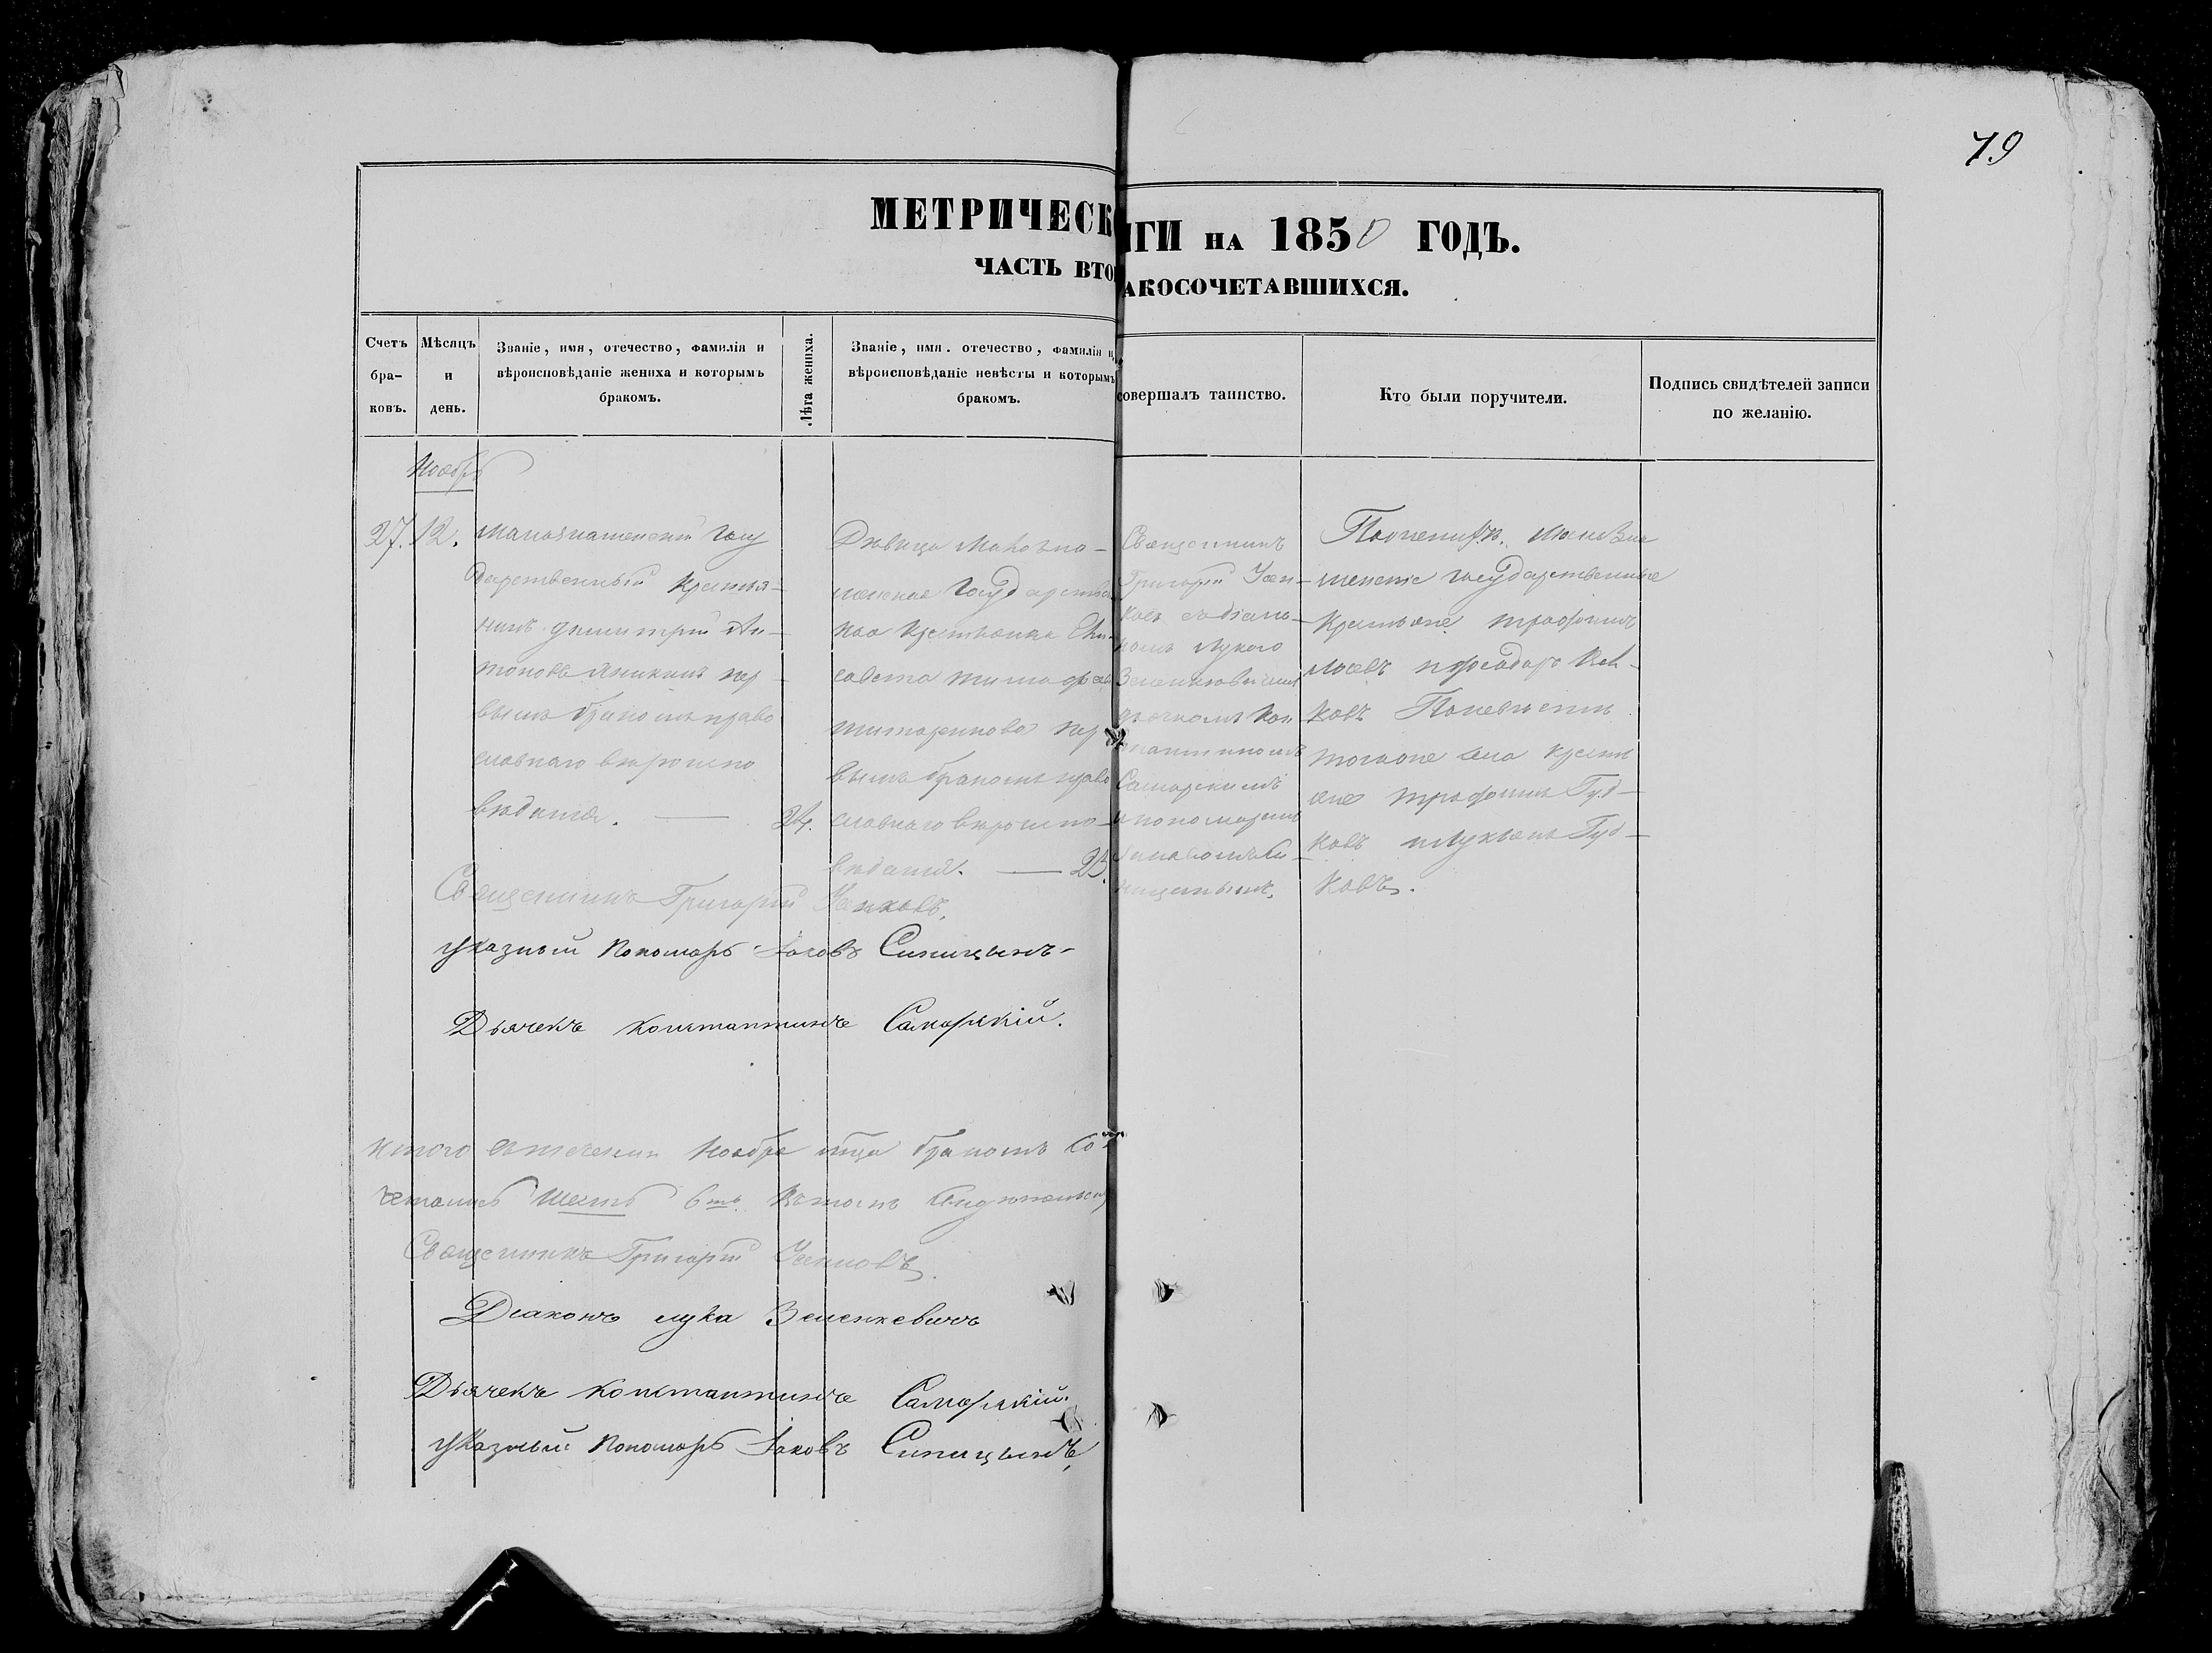 79
МЕТРИЧЕСК ИГИ НА 1850 ГОДЪ.
ЧАСТЬ ВТО АКОСОЧЕТАВШИХСЯ.
Счетъ бра-ковъ.
Мѣсяцъ и день.
Званіе, имя, отечество, фамилія и
вѣроисповѣданіе жениха и которымъ
бракомъ.
Лѣта жениха.
Званіе, имя. отечество, фамилія и
вѣроисповѣданіе невѣсты и которымъ
бракомъ.
совершалъ таинство.
Кто были поручители.
Подпись свидѣтелей записи
по желанію.
Ноябрь
27. 12.
Госу
дарственный крестья-
нинъ Димитрій Ан-
тоновъ пер-
вымъ бракомъ право
славнаго вѣроиспо
вѣданія. 24.
Дѣвица
Государствен
ная крестьянка Ели-
савета Тимофеева
пер
вымъ бракомъ право
славнаго вѣроиспо-
вѣданія. 23.
Священникъ
Григорій
съ діако-
номъ Лукою
Зеленкевичемъ
дьячкомъ Кон
стантиномъ
Самарскимъ
и пономаремъ
Иаковомъ Си-
ницынымъ.
По женихѣ.
государственные
крестьяне Трофимъ
По невѣстѣ
крестья
не Трофимъ Гуд-
ковъ и Лукьянъ Гуд-
ковъ.
Священникъ Григорій
Указный Пономарь Іаковъ Синицынъ
Дьячекъ Константинъ Самарскій.
Итого въ теченіи Ноября м-ца бракомъ со-
четались шесть 6ть.
Священникъ Григорій
Діаконъ Лука Зеленкевичъ
Дьячекъ Константинъ Самарскій.
Указный Пономарь Іаковъ Синицынъ